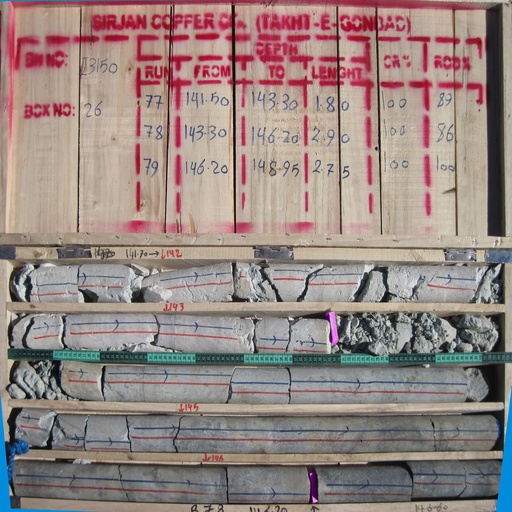 SIRJAN COPPER CO. (TAKHT-E-GONBAD)
DEPTH
BH NO: RUN FROM TO LENGHT CR% RQD%
BOX NO: 26
77 141.50 143.30 1.80 100 89
78 143.30 146.20 2.90 100 86
79 146.20 148.95 2.75 100 100
141.70 → 142
143
145
146